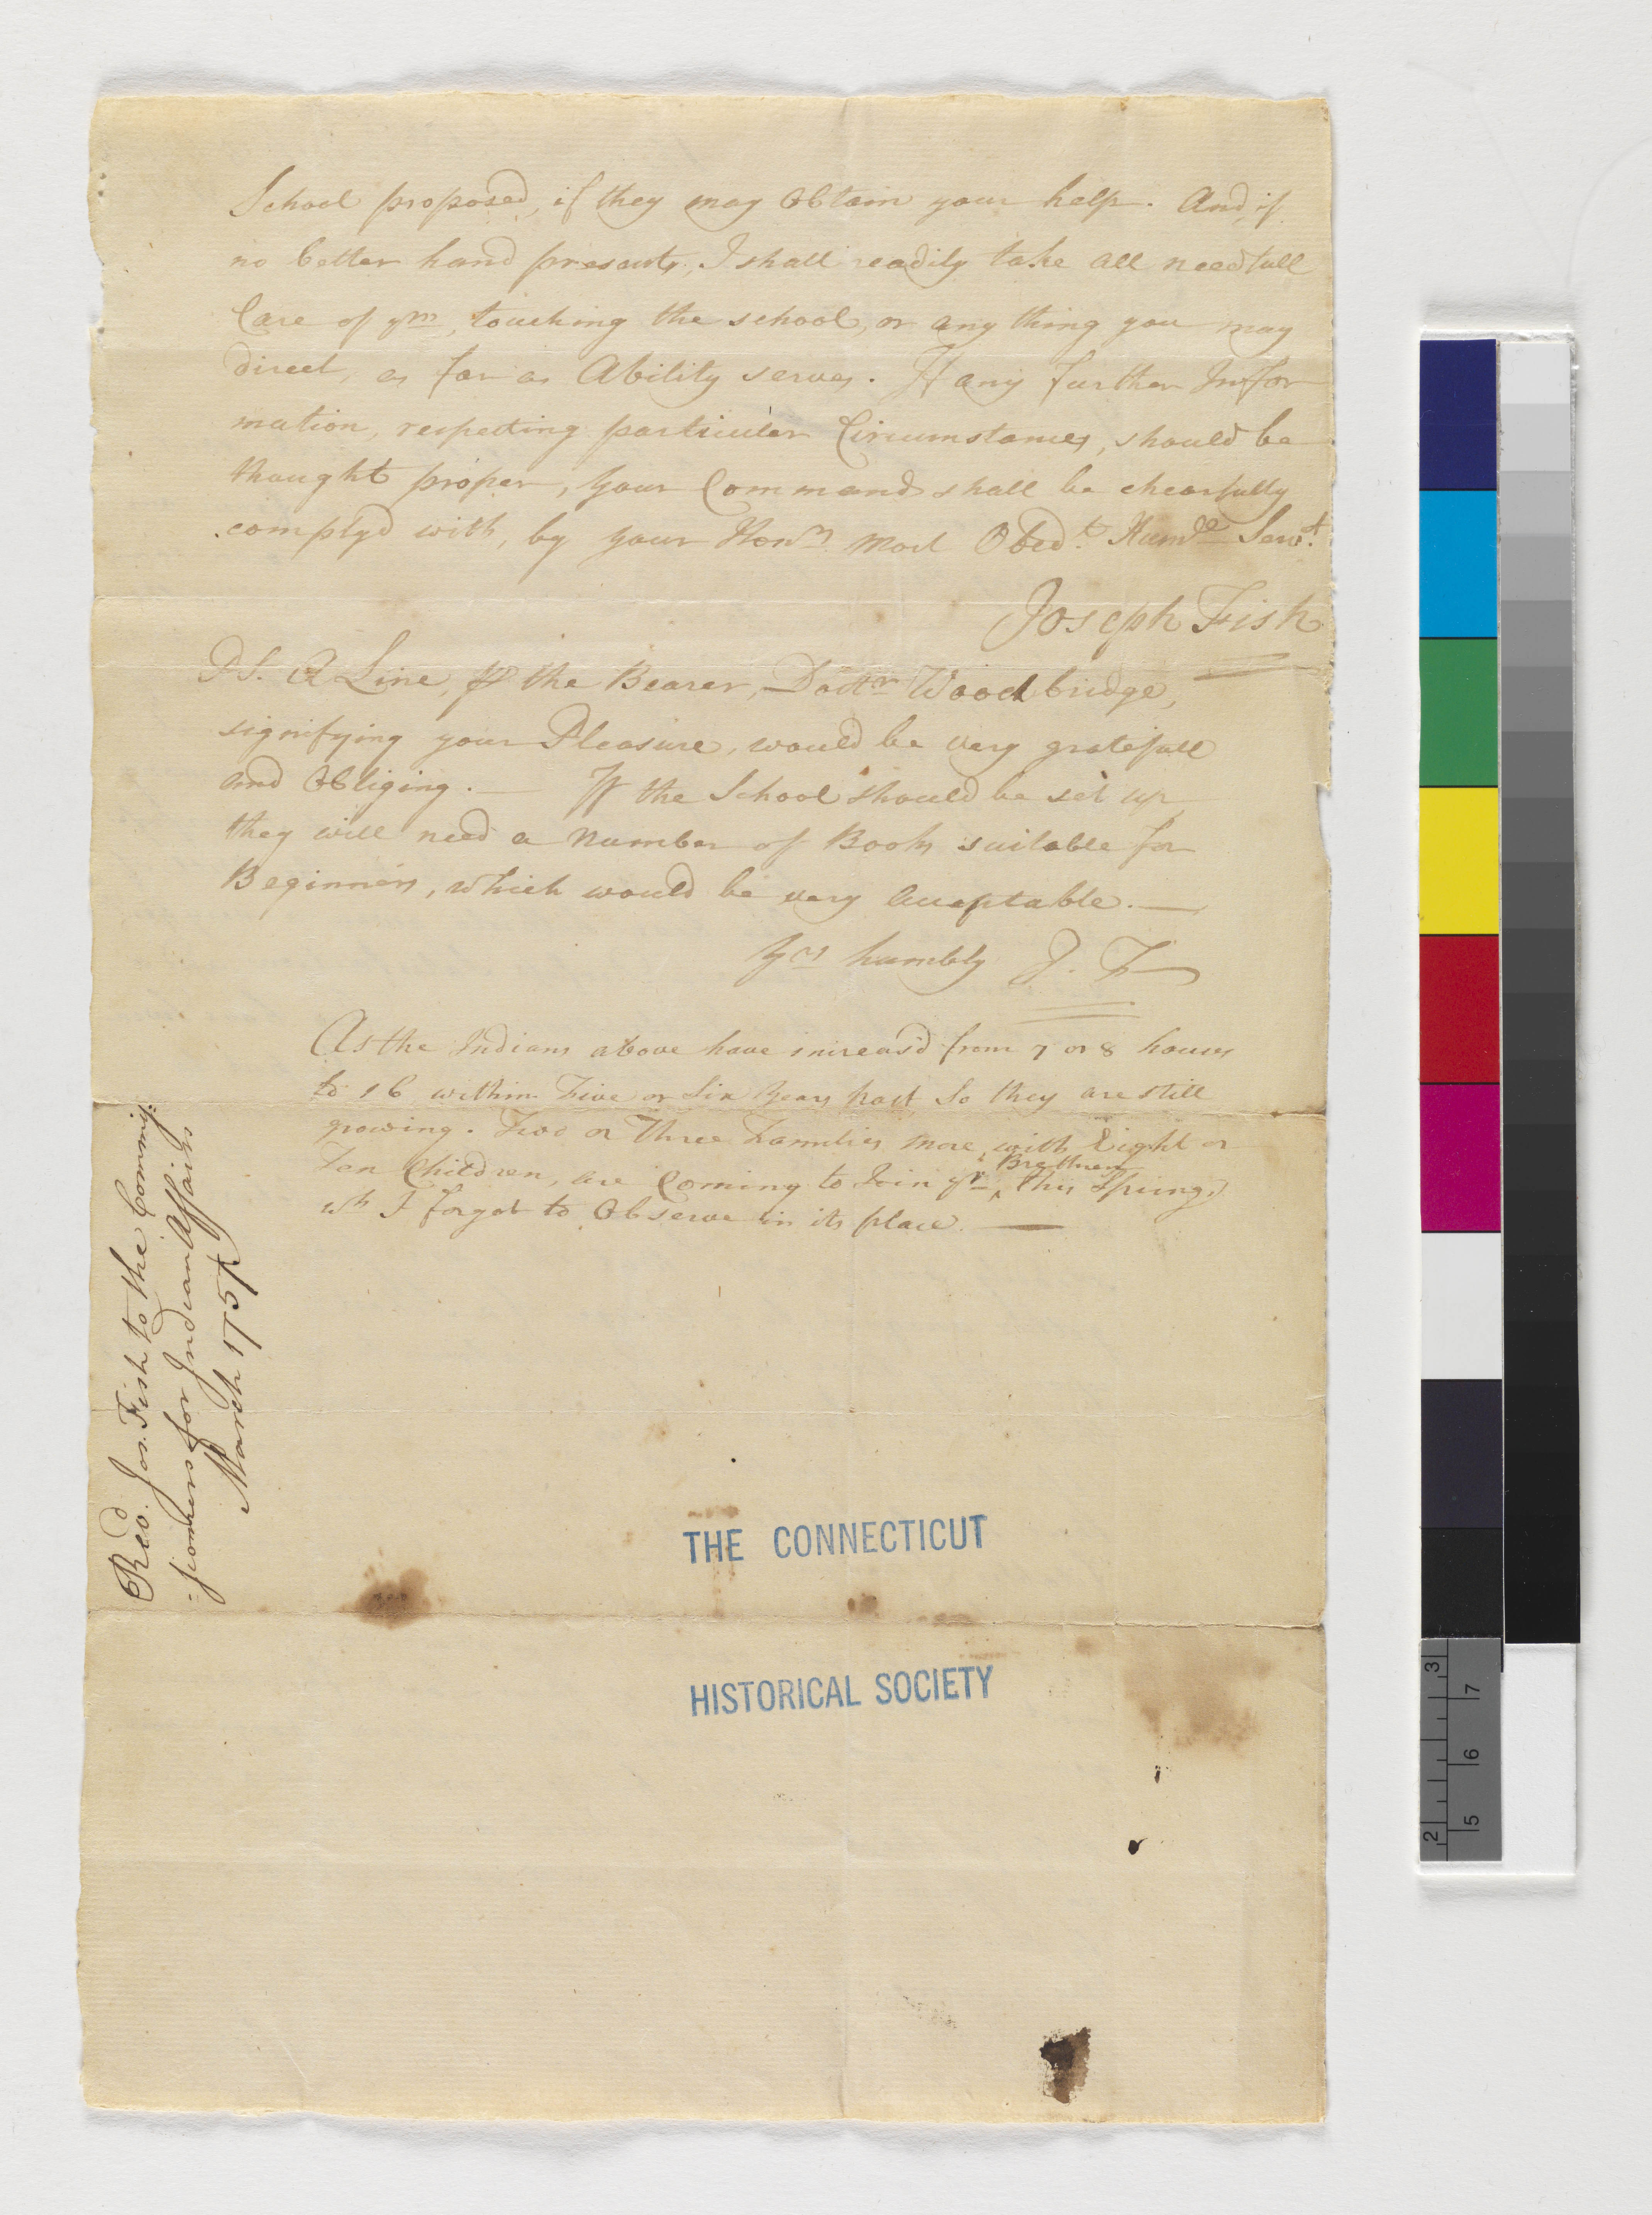 School proposed, if they may Obtain your help. And, if
no better hand presents, I shall readily take all needfull
Care of ym, touching the school, or any thing you may
direct, as far as Ability serves. If any further Infor
mation, respecting particular Circumstances, should be
thought proper, your Command shall be chearfully
complyd with, by your Honrs most Obedt. Humle Servt.
Joseph Fish
PS. A Line, pr the Bearer, Doctr Woodbridge,
signifying your Pleasure, would be very gratefull
and Obliging. — If the School should be set up,
they will need a number of Books suitable for
Beginners, which would be very acceptable. —
Yrs humbly J. F
As the Indians above have increas'd from 7 or 8 houses
to 16 within Five or Six Years past So they are still
growing. Two or Three Families more, with Eight or
Ten Children, are Coming to Join yr Brethren this Spring,
wh I forgot to Observe in its place. —
Revd. Jos. Fish to the Commis
:sioners for Indian Affairs
March 1757
THE CONNECTICUT
HISTORICAL SOCIETY
2 3
5 6 7